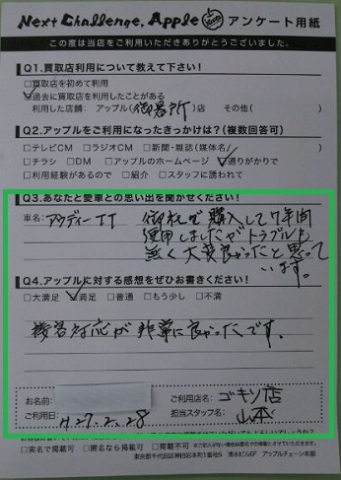 Next Challenge, Apple アンケート用紙
この度は当店をご利用いただきありがとうございました。
Q1.買取店利用について教えて下さい!
□買取店を初めて利用
☑過去に買取店を利用したことがある
利用した店舗: アップル(御器所)店 その他( )
Q2.アップルをご利用になったきっかけは?(複数回答可)
□テレビCM □ラジオCM □新聞・雑誌(媒体名/ )
□チラシ □DM □アップルのホームページ ☑通りがかりで
□利用経験があるので □紹介 □スタッフに誘われて
Q3.あなたと愛車との思い出を聞かせください!
車名: アウディーTT
御社で購入して7年間
使用しましたがトラブルも
無く大変良かったと思って
います。
Q4.アップルに対する感想をぜひお書きください!
□大満足 ☑満足 □普通 □もう少し □不満
接客対応が非常に良かったです。
お名前:
ご利用店名: ゴキソ店
ご利用日: H.27.2.28
担当スタッフ名: 山本
□実名で掲載可 □匿名なら掲載可 □掲載不可